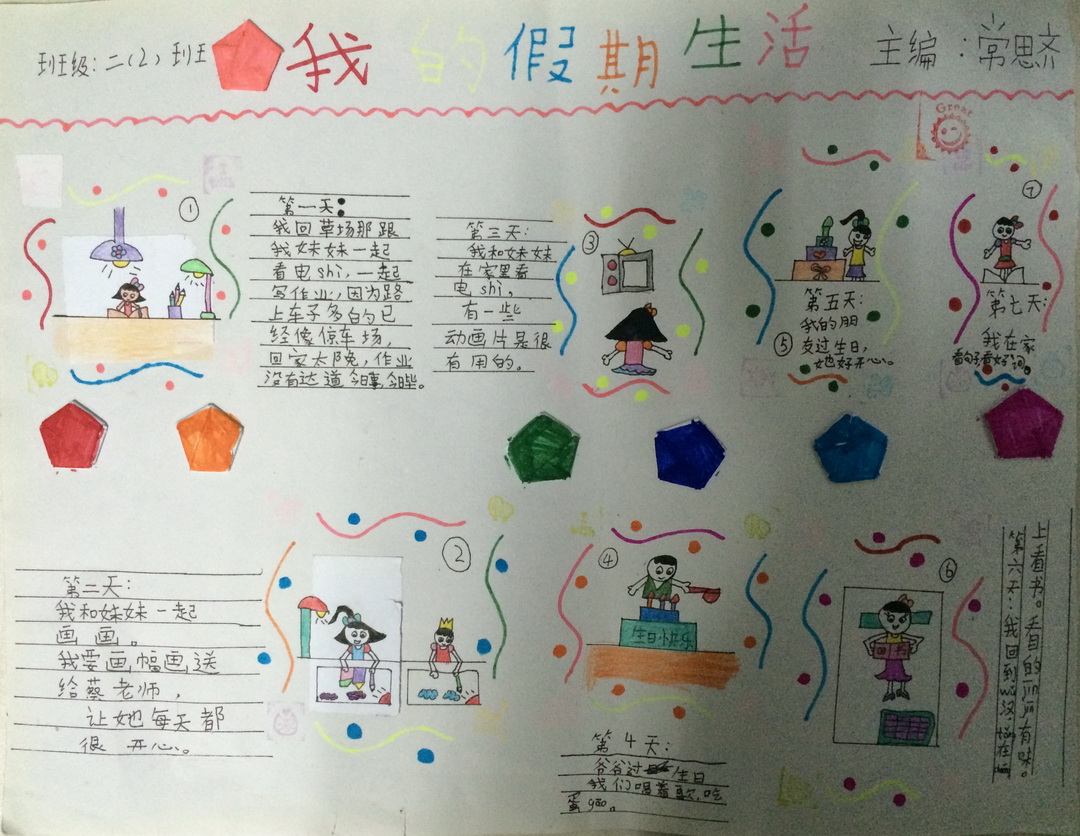 班级:二(2)班
我的假期生活
主编:常思齐
Great
①
第一天:
我回草场那跟
我妹妹一起
看电shi,一起
写作业,因为路
上车子多的已
经像停车场,
回家太晚,作业
没有达道今日事,今日毕。
第三天:
我和妹妹
在家里看
电shi,
有一些
动画片是很
有用的。
③
第五天:
我的朋
友过生日,
她好开心。
⑤
⑦
第七天:
我在家
看句子看好词。
第二天:
我和妹妹一起
画画。
我要画幅画送
给蔡老师,
让她每天都
很开心。
②
④
生日快乐
第4天:
爷爷过生日
我们唱着歌,吃
蛋gao。
⑥
第六天:我回到
上看书。看目的jinjin有味。